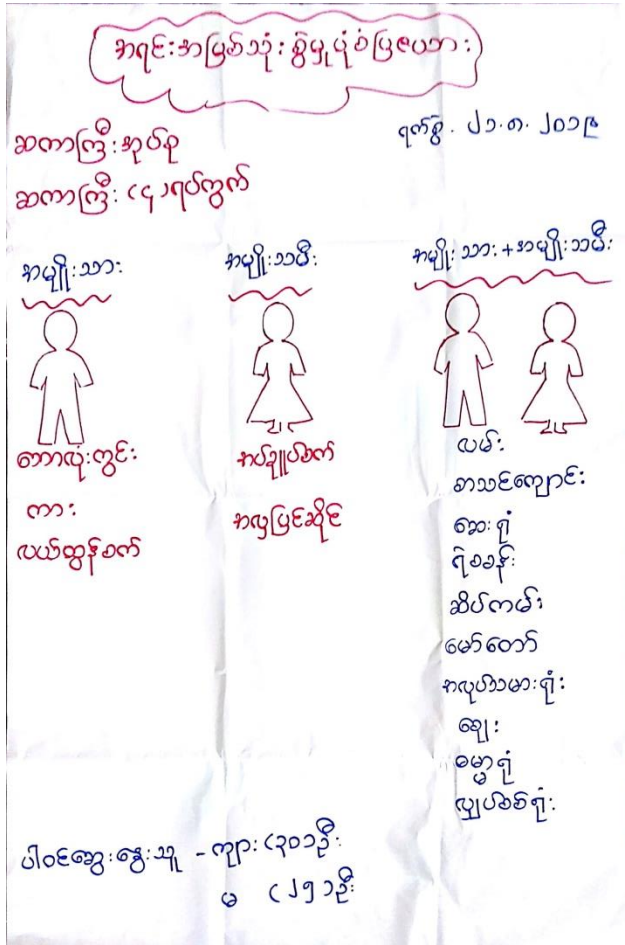 အရင်းအမြစ်သုံးစွဲမှုပုံစံပြဇယား
ရက်စွဲ. ၂၁.၈.၂၀၁၉
ဆကာကြီးအုပ်စု
ဆကာကြီး (၄)ရပ်ကွက်
အမျိုးသား
ဘောလုံးကွင်း
ကား
လယ်ထွန်စက်
အမျိုးသမီး
အပ်ချုပ်စက်
အလှပြင်ဆိုင်
အမျိုးသား + အမျိုးသမီး
လမ်း
စာသင်ကျောင်း
ဆေးရုံ
ရဲစခန်း
ဆိပ်ကမ်း
မော်တော်
အလုပ်သမားရုံး
ဈေး
ဓမ္မာရုံ
လျှပ်စစ်ရုံး
ပါဝင်ဆွေးနွေးသူ - ကျား (၃၀)ဦး
မ (၂၅)ဦး